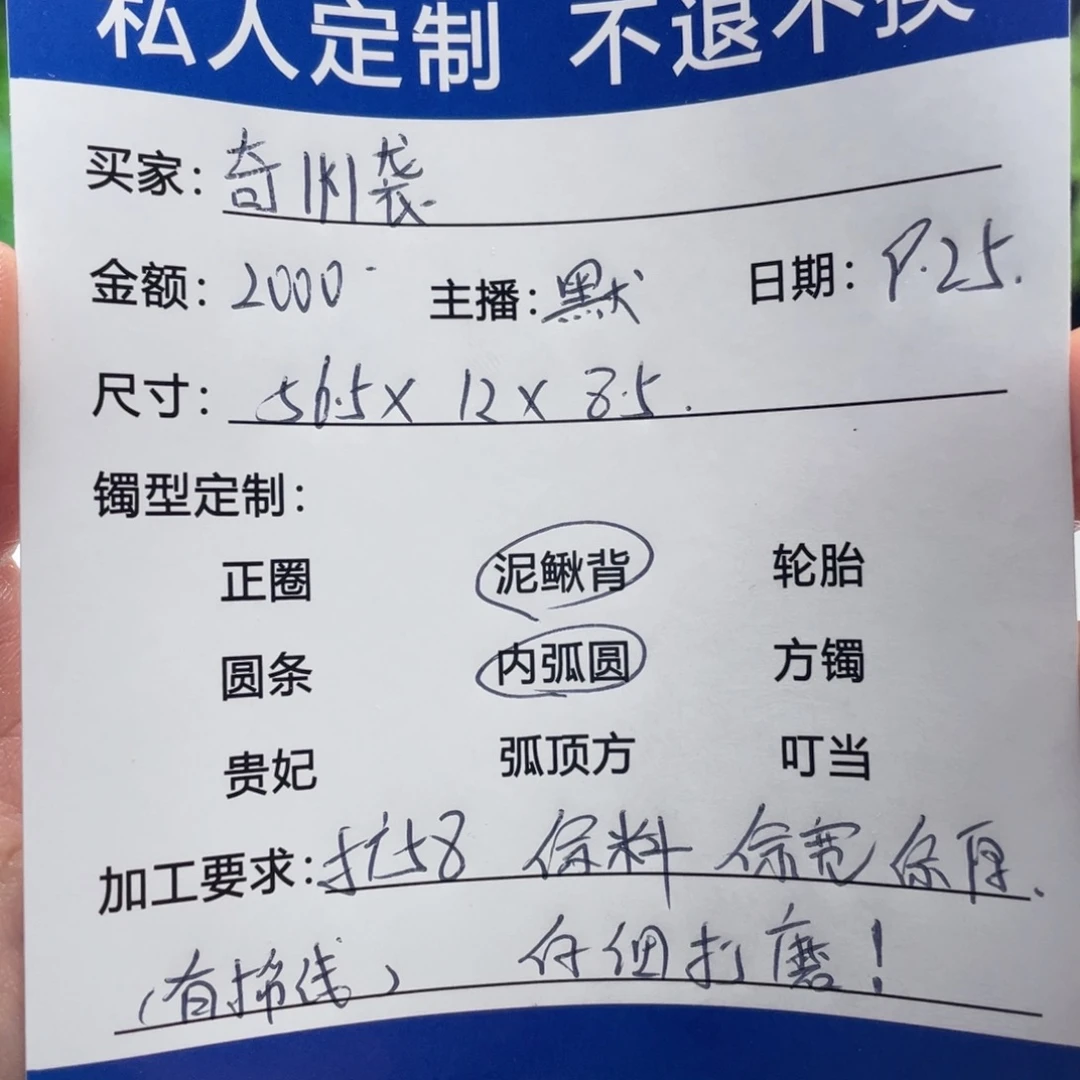 私人定制 不退不换
买家：奇洲袋
金额：2000 主播：默 日期：9.25.
尺寸：56.5x 12x 8.5.
镯型定制：
正圈 泥鳅背 轮胎
圆条 内弧圆 方镯
贵妃 弧顶方 叮当
加工要求：扩58 保料 保宽 保厚.
（有棉线） 仔细打磨！